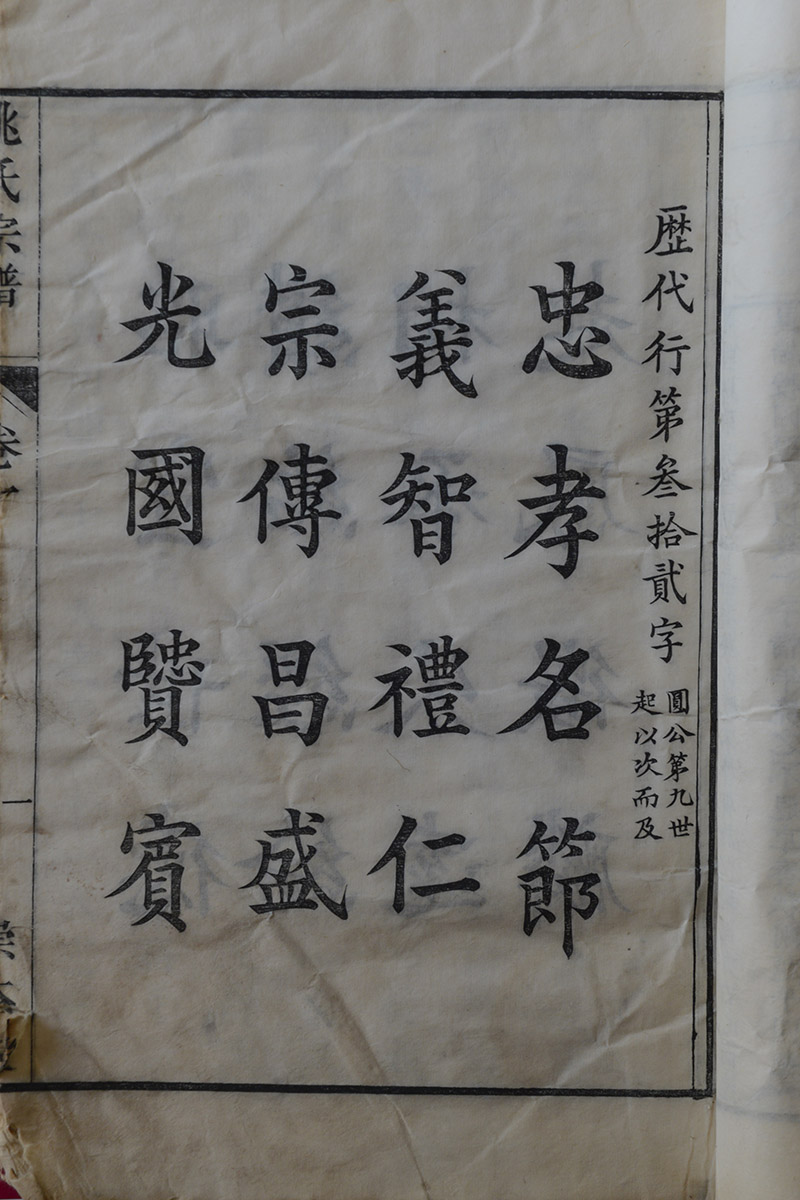 歷代行第叁拾貳字
圓公第九世
起以次而及
忠孝名節
義智禮仁
宗傳昌盛
光國賢賓
姚氏宗譜
卷一
一